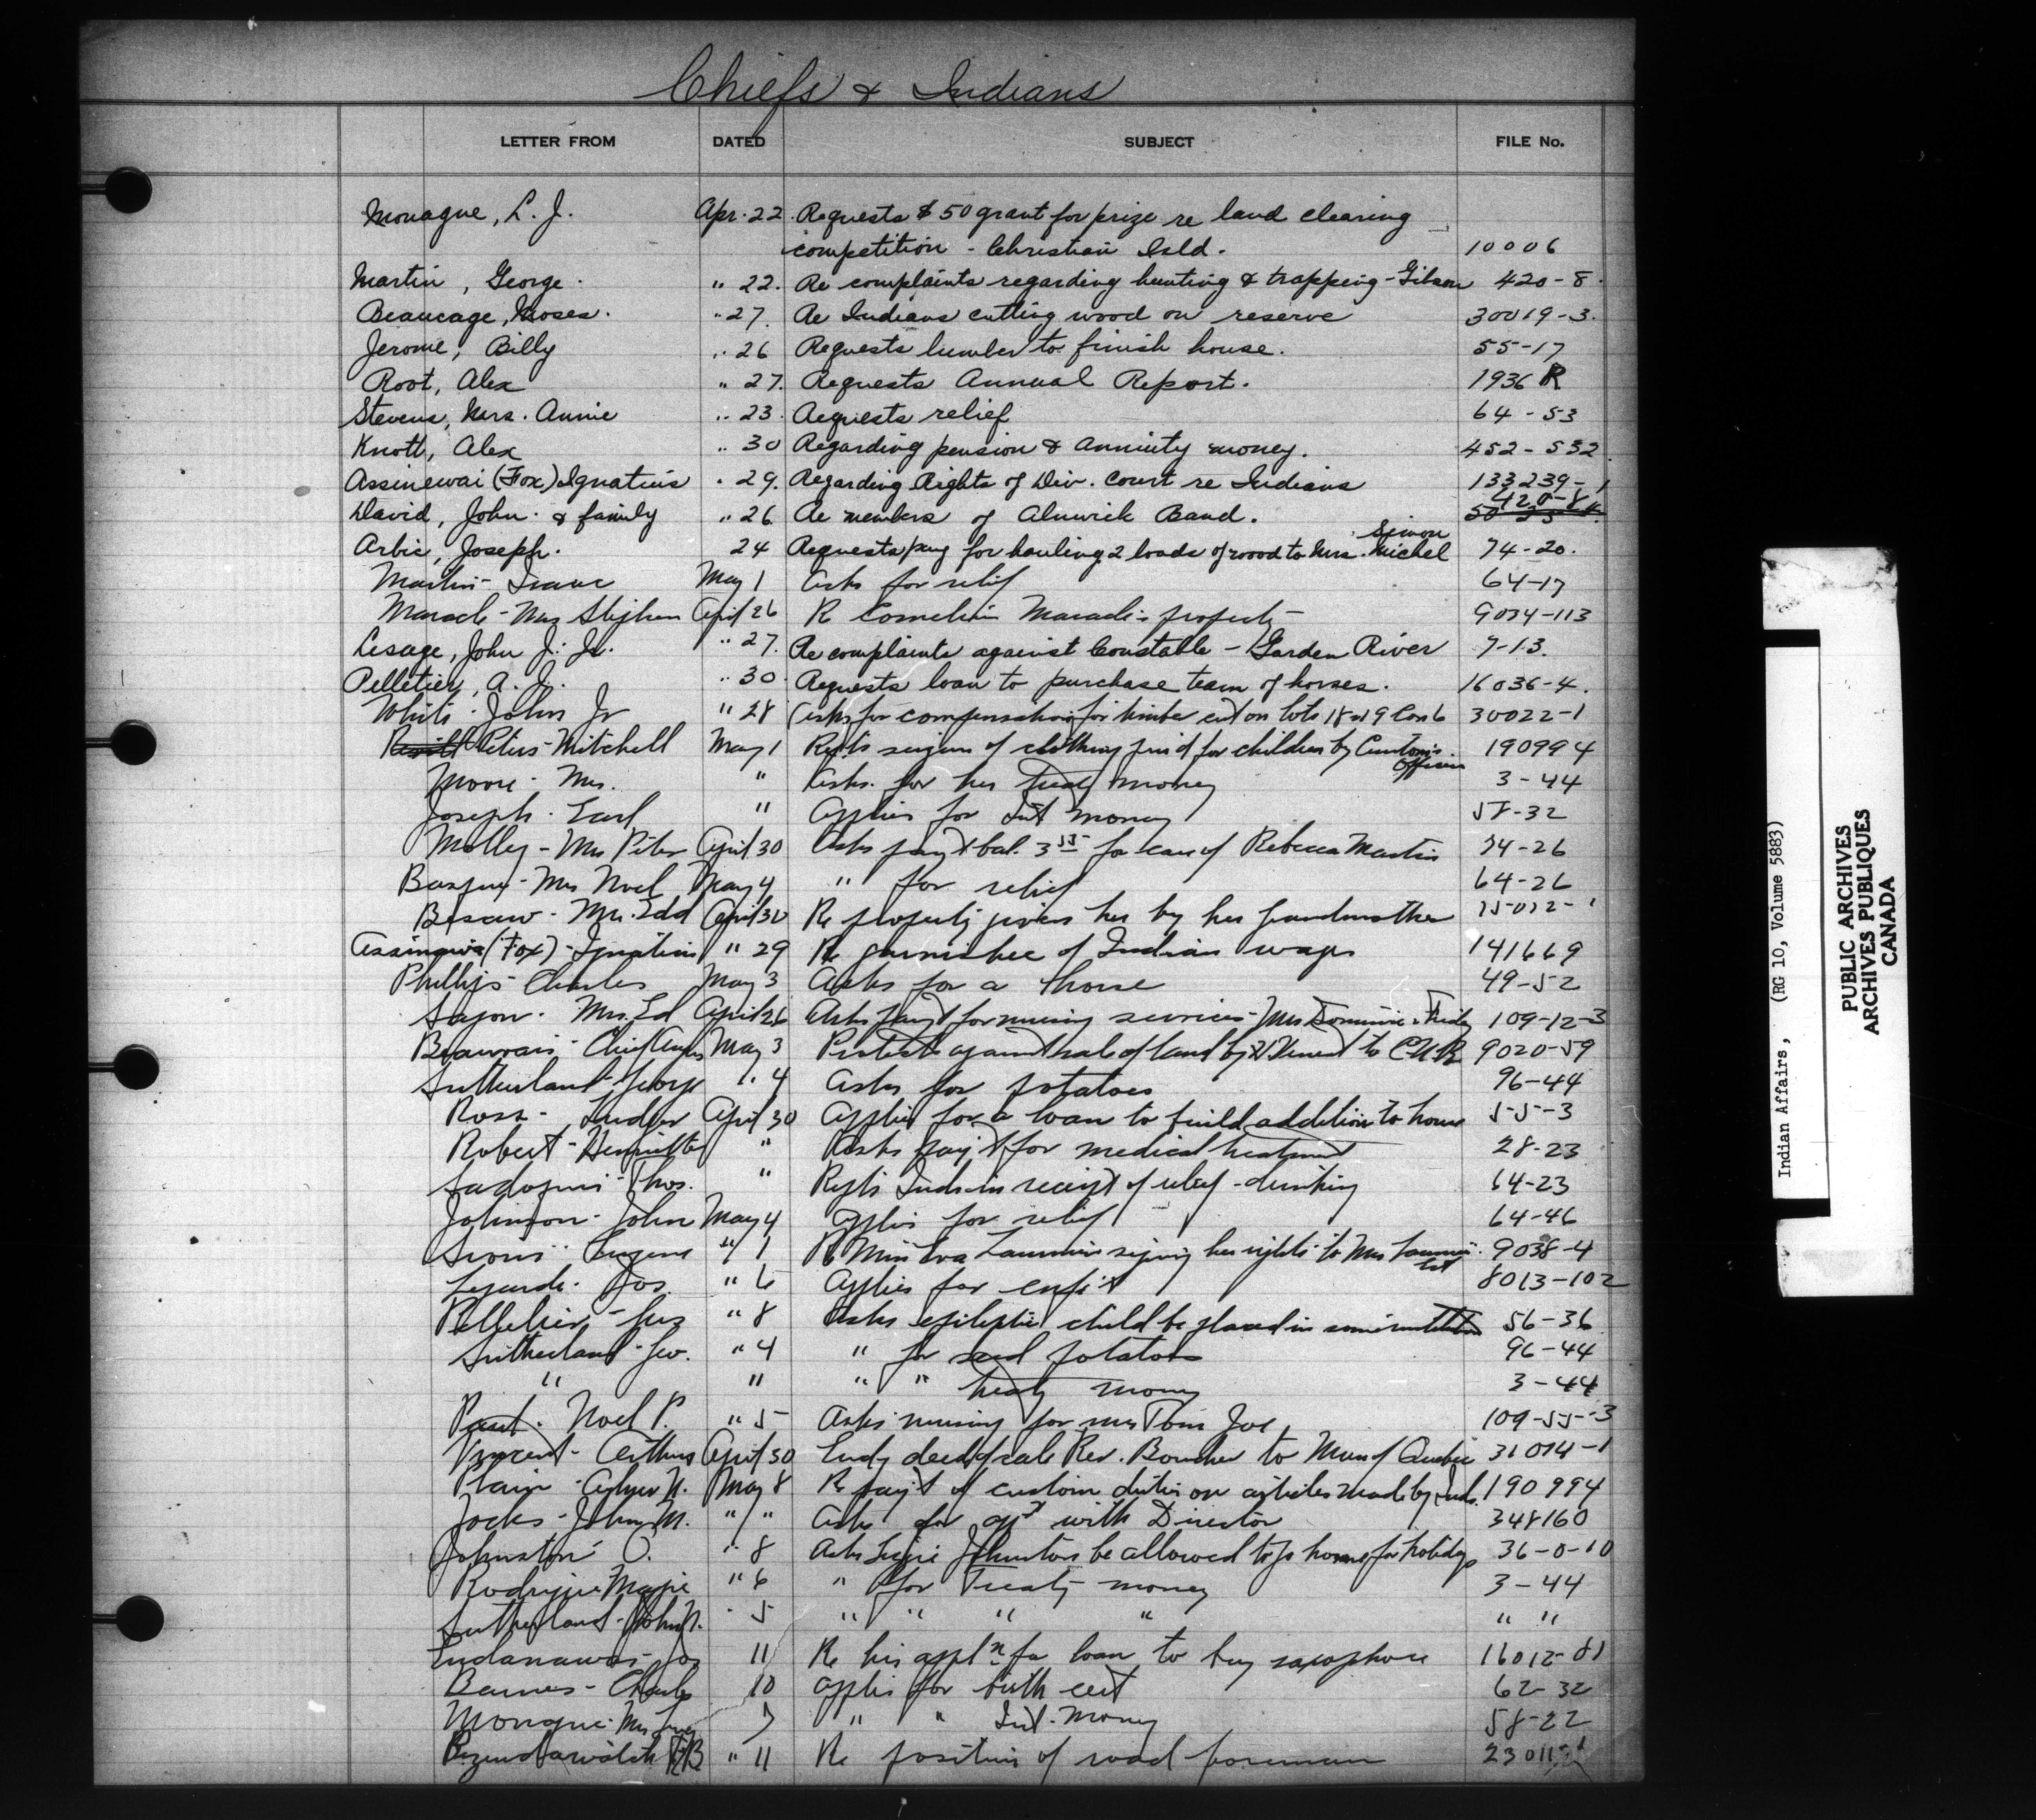 Chiefs & Indians
LETTER FROM DATED SUBJECT FILE No.
Monague, L. J. Apr. 22. Requests $50 grant for prize re land clearing
competition - Christian Isld. 10006
Martin, George. " 22. Re complaints regarding hunting & trapping - Gibson 420-8.
Beaucage, Moses. " 27. Re Indians cutting wood on reserve 30019-3.
Jerome, Billy " 26 Requests lumber to finish house. 55-17
Root, Alex " 27. Requests Annual Report. 1936 R
Stevens, Mrs. Annie " 23. Requests relief 64-53
Knott, Alex " 30 Regarding pension & annuity money. 452-532.
Assinewai (Fox) Ignatius " 29. Regarding Rights of Div. Court re Indians 133239-1
420-8
David, John & family " 26. Re members of Alnwick Band.
Simon
Arbic, Joseph. 24 Requests pay for hauling 2 loads of wood to Mrs. Michel 74-20.
Martin - Isaac May 1 Asks for relief 64-17
Maracle - Mrs Stephen April 26 Re Cornelius Maracle's property 9034-113
Lesage, John J. Jr. " 27. Re complaints against Constable - Garden River 7-13.
Pelletier, A. J. " 30. Requests loan to purchase team of horses. 16036-4.
White - John Jr " 28 Asks for compensation for timber cut on lots 18 & 19 Con 6 30022-1
Peters - Mitchell May 1 Repts seizure of clothing for children by Customs 190994
Officers
Moore - Mrs. " Asks for her treaty money 3-44
Joseph - Earl " Applies for Int money 58-32
Molley - Mrs Peter April 30 Asks pay't bal. 3 55 for care of Rebecca Martin 74-26
Basque - Mrs Noel May 4 " for relief 64-26
Besaw - Mrs. Edd April 30 Re property given her by her grandmother
(Fox) - Ignatius " 29 Re garnishee of Indian wages 141669
Phillips - Charles May 3 Asks for a horse 49-52
Mrs. Ed April 26 Asks pay't for nursing services - Mrs 109-12-3
Beauvais - Chief May 3 Protests against sale of land by to C.P.R. 9020-59
Sutherland - George " 4 Asks for potatoes 96-44
Ross - April 30 Applies for a loan to build addition to house 55-3
Robert - Henriette " Asks pay't for medical treatment 28-23
Thos. " Repts Inds in receipt of relief - drinking 64-23
Johnson - John May 4 Applies for relief 64-46
Sioui - Eugene " 1 Re Miss Eva signing her rights to Mrs 9038-4
Jos. " 6 Applies for enf't 8013-102
Pelletier - " 8 Asks epileptic child be placed in some institution 56-36
Sutherland - Geo. " 4 " for seed potatoes 96-44
" " " " treaty money 3-44
Paul - Noel P. " 5 Asks nursing for Mrs Tom Joe 109-55-3
Vincent - Arthur April 30 deed of sale Rev. to Mun of Quebec
Plain - N. May 8 Re pay't of custom duties on articles made by Inds. 190994
Jocks - John M. " " Asks for with Director 348160
Johnston O. " 8 Asks Johnston be allowed to go home for holidays 36-0-10
" 6 " for Treaty money 3-44
Sutherland - John N. " 5 " " " " " "
11 Re his appl n for loan to buy saxophone 16012-81
Barnes - Charles 10 Applies for birth cert 62-32
Monague - Mrs 7 " " Int. Money 58-22
" 11 Re position of road foreman
Indian Affairs, (RG 10, Volume 5883)
PUBLIC ARCHIVES
ARCHIVES PUBLIQUES
CANADA